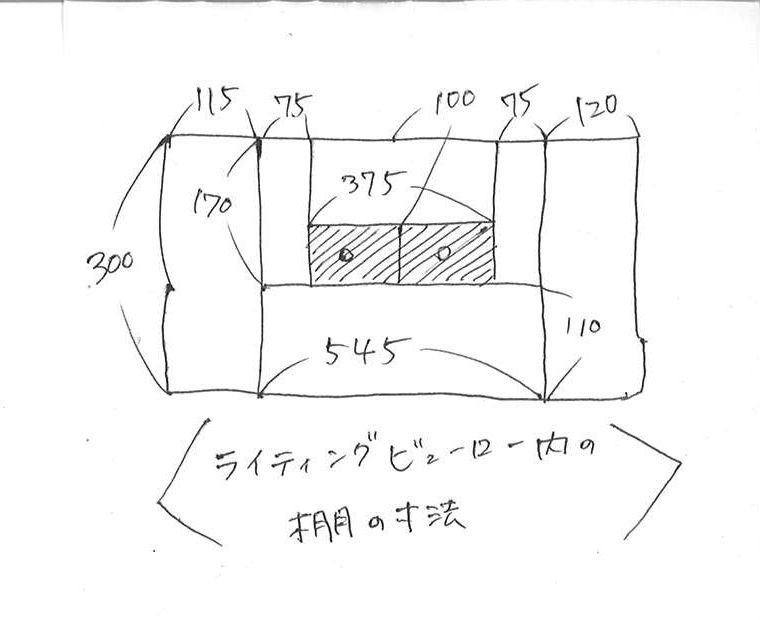 115 75 100 75 120
375
170
300
110
545
ライティングビューロー内の
棚の寸法